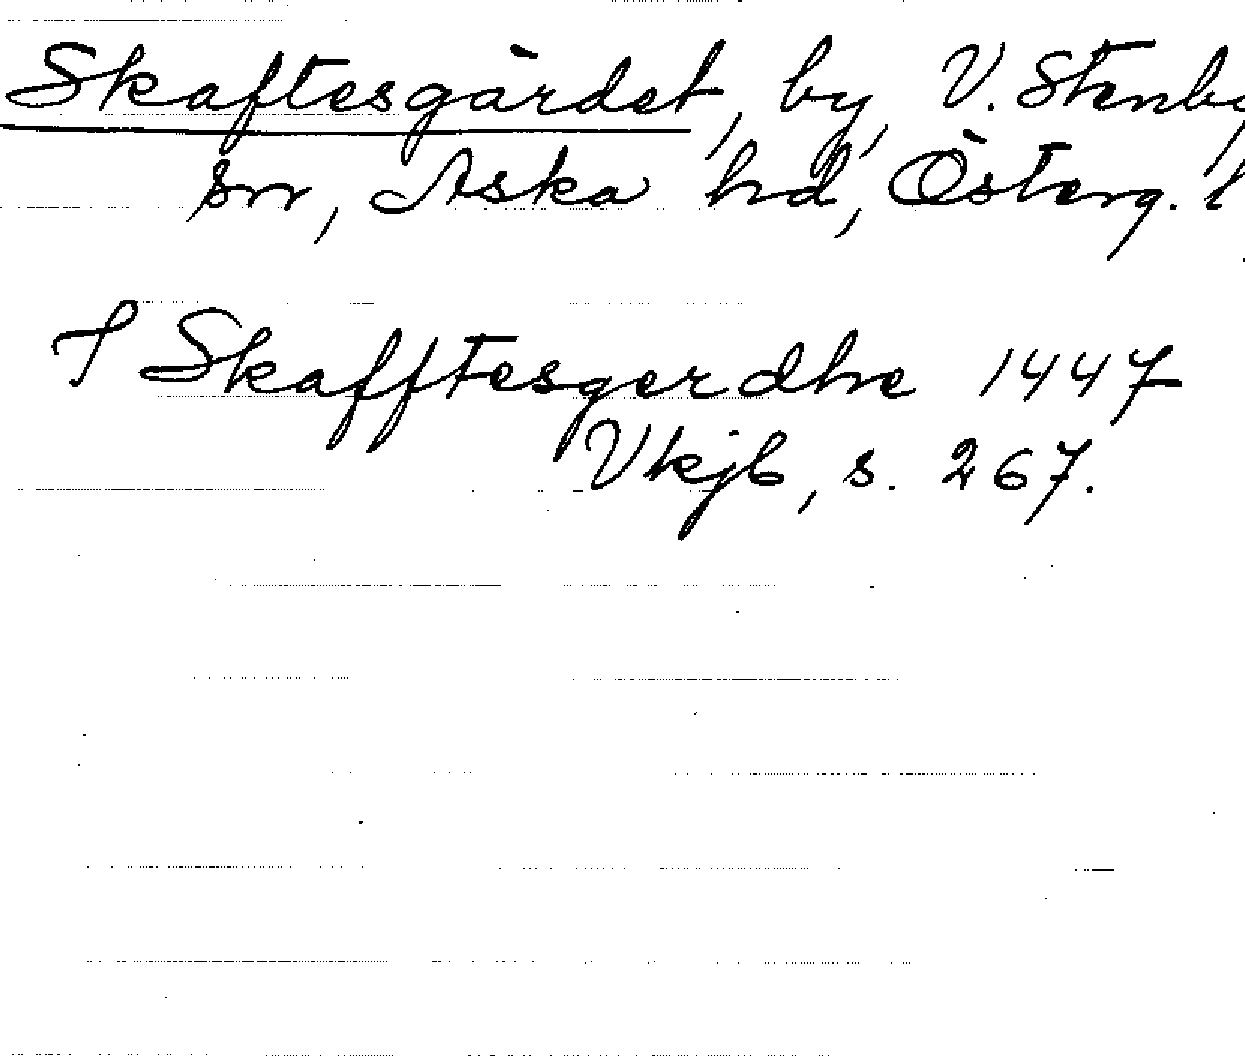 Skaftesgärdet, by, V. Stenby
sn, Aska hd, Österg. l
J Skafftesgerdhe 1447
Vkjb, s. 267.